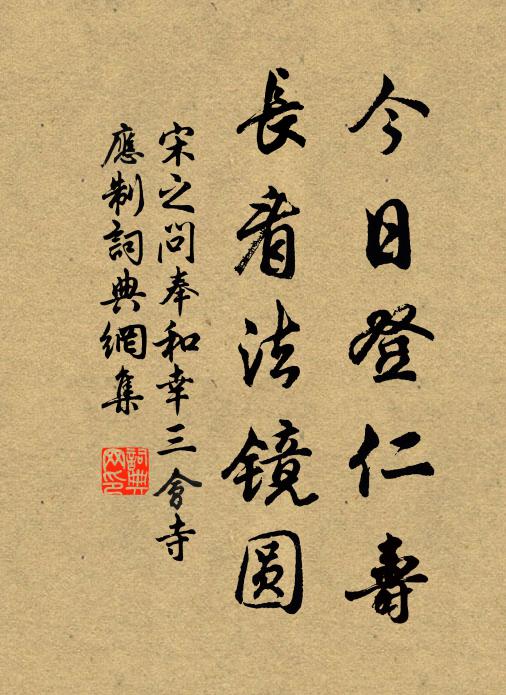 今日登仁壽
長看法镜圆
宋之问奉和幸三會寺
應制詞典網集
詞典网印